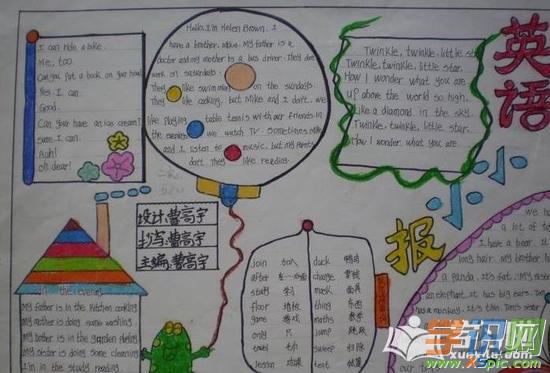 I can ride a bike.
Me, too.
Can you put a book on your head
Yes. I can.
Good.
Can your have an ice cream?
sure. I can.
Auh!
Oh dear!
Hello, I'm Helen Brown. I
have a brother, Mike. My father is a
doctor and my mother is a bus driver. They don't
work on saturdays.
They like swimming on the sundays.
They like cooking, but Mike and I don't. we
like playing table tenis with our friends in
the evening we watch TV. Sometimes Mike
and I listen to music, but my parents
don't, they like reading.
Twinkle, twinkle, little star
Twinkle, twinkle, little star.
How I wonder what you are
up above the world so high.
Like a diamond in the sky.
Twinkle, twinkle, little star.
How I wonder what you are.
英语
小小
报
设计:曹高宇
抄写:曹高宇
主编:曹高宇
In the evening
My father is in the kitchen cooking
My mother is doing some washing
My brother is in the garden playing
My sister is doing some cleaning
I'm in the study reading
join 加入
after
study 学习
floor 地板
game 游戏
only 只
lesson 功课
duck 鸭子
change
mask 面具
thing 东西
math 数学
jump 跳跃
sweep 扫除
tent 帐篷
we
a lot of
I have a bear. It
long hair. My
a panda. It's fat. My sister
an elephant. It has big ears. Da
has a monkey.
学识网
www.xspic.com